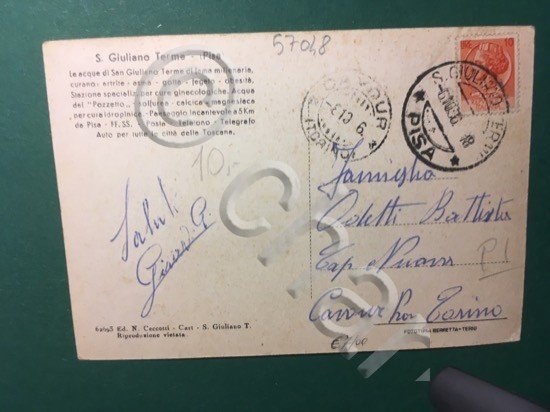 57048
S. Giuliano Terme - (Pisa)
Le acque di San Giuliano Terme di fama millenaria,
curano: artrite - asma - gotta - fegato - obesità.
Stazione specializ. per cure ginecologiche. Acqua
del "Pozzetto" solfurea - calcica - magnesiaca
per cura idropinica. - Paesaggio incantevole a 5 Km
da Pisa - FF. SS. - Posta - Telefono - Telegrafo
Auto per tutte le città della Toscana.
10,-
S. GIULIANO TERME
PISA
Saluti
Famiglia
Odetti Battista
Cap Nuova
Cavour Prov Torino
P1
62693 Ed. N. Ceccotti - Cart - S. Giuliano T.
Riproduzione vietata
FOTOTIPIA BERRETTA-TERNI